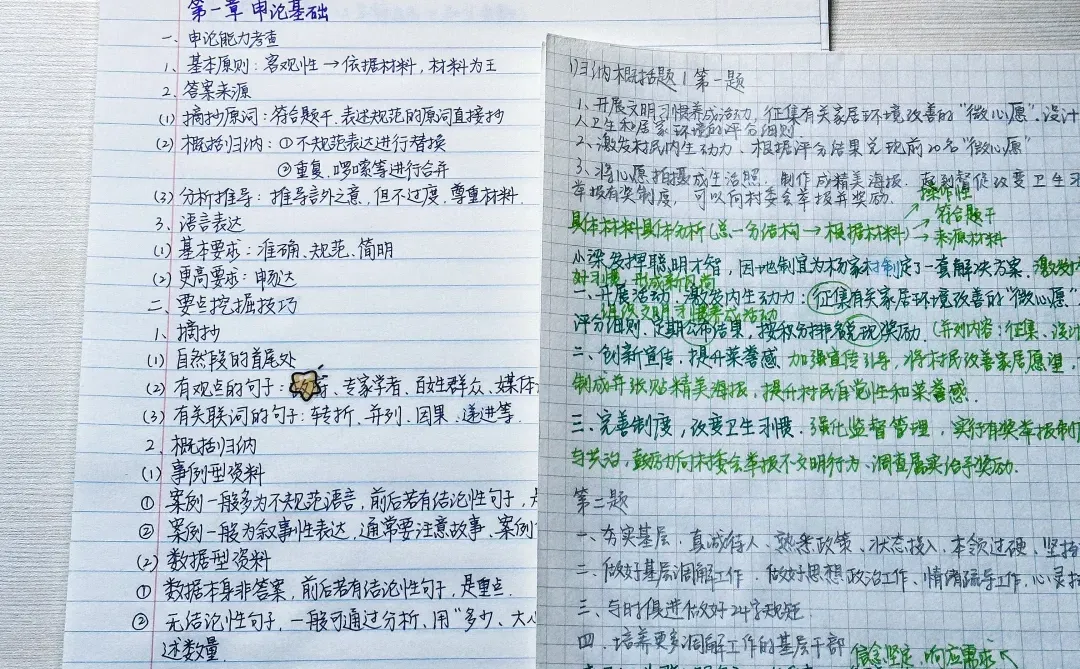 第一章 申论基础
一、申论能力考查
1、基本原则：客观性→依据材料，材料为王
2、答案来源
(1) 摘抄原词：符合题干、表述规范的原词直接抄
(2) 概括归纳：①不规范表达进行替换
②重复、啰嗦等进行合并
(3) 分析推导：推导言外之意，但不过度，尊重材料.
3、语言表达
(1) 基本要求：准确、规范、简明
(2) 更高要求：申畅达
二、要点挖掘技巧
1、摘抄
(1) 自然段的首尾处
(2) 有观点的句子：、专家学者、百姓群众、媒体
(3) 有关联词的句子：转折、并列、因果、递进等.
2、概括归纳
(1) 事例型资料
① 案例一般多为不规范语言，前后若有结论性句子，是
② 案例一般为叙事性表达，通常要注意故事、案例
(2) 数据型资料
① 数据本身非答案，前后若有结论性句子，是重点.
② 无结论性句子，一般可通过分析、用"多少、大
述数量.
归纳概括题1 第一题
1、开展文明习惯养成活动，征集有关家居环境改善的"微心愿"，设计
人卫生和居家环境的评分细则
2、激发村民内生动力、根据评分结果兑现前20名"微心愿"
3、将心愿拍摄成生活照，制作成精美海报，起到督促改变卫生习
举报有奖制度，可以向村委会举报并奖励.
操作性
符合题干
具体材料具体分析(总—分结构→根据材料)→来源材料
小梁发挥聪明才智，因地制宜为杨家村制定了一套解决方案，激发
好习惯，形成新风尚
一、开展活动、激发内生动力：征集有关家居环境改善的"微心愿"
组改文明习惯养成活动
评分细则、定期公布结果，按积分排名兑现奖励.(并列内容：征集、设计
二、创新宣传、提升荣誉感.加强宣传引导，将村民改善家居愿望，
制成并张贴精美海报，提升村民自觉性和荣誉感.
三、完善制度，改变卫生习惯.强化监督管理，实行有奖举报制
与共治，鼓励向村委会举报不文明行为、调查属实给予奖励.
第二题
一、夯实基层、真诚待人、熟悉政策、状态投入、本领过硬、坚持
二、做好基层调解工作、做好思想政治工作、情绪疏导工作、心灵
三、与时俱进做好24字规矩
四、培养更多调解工作的基层干部
信念坚定、响应需求